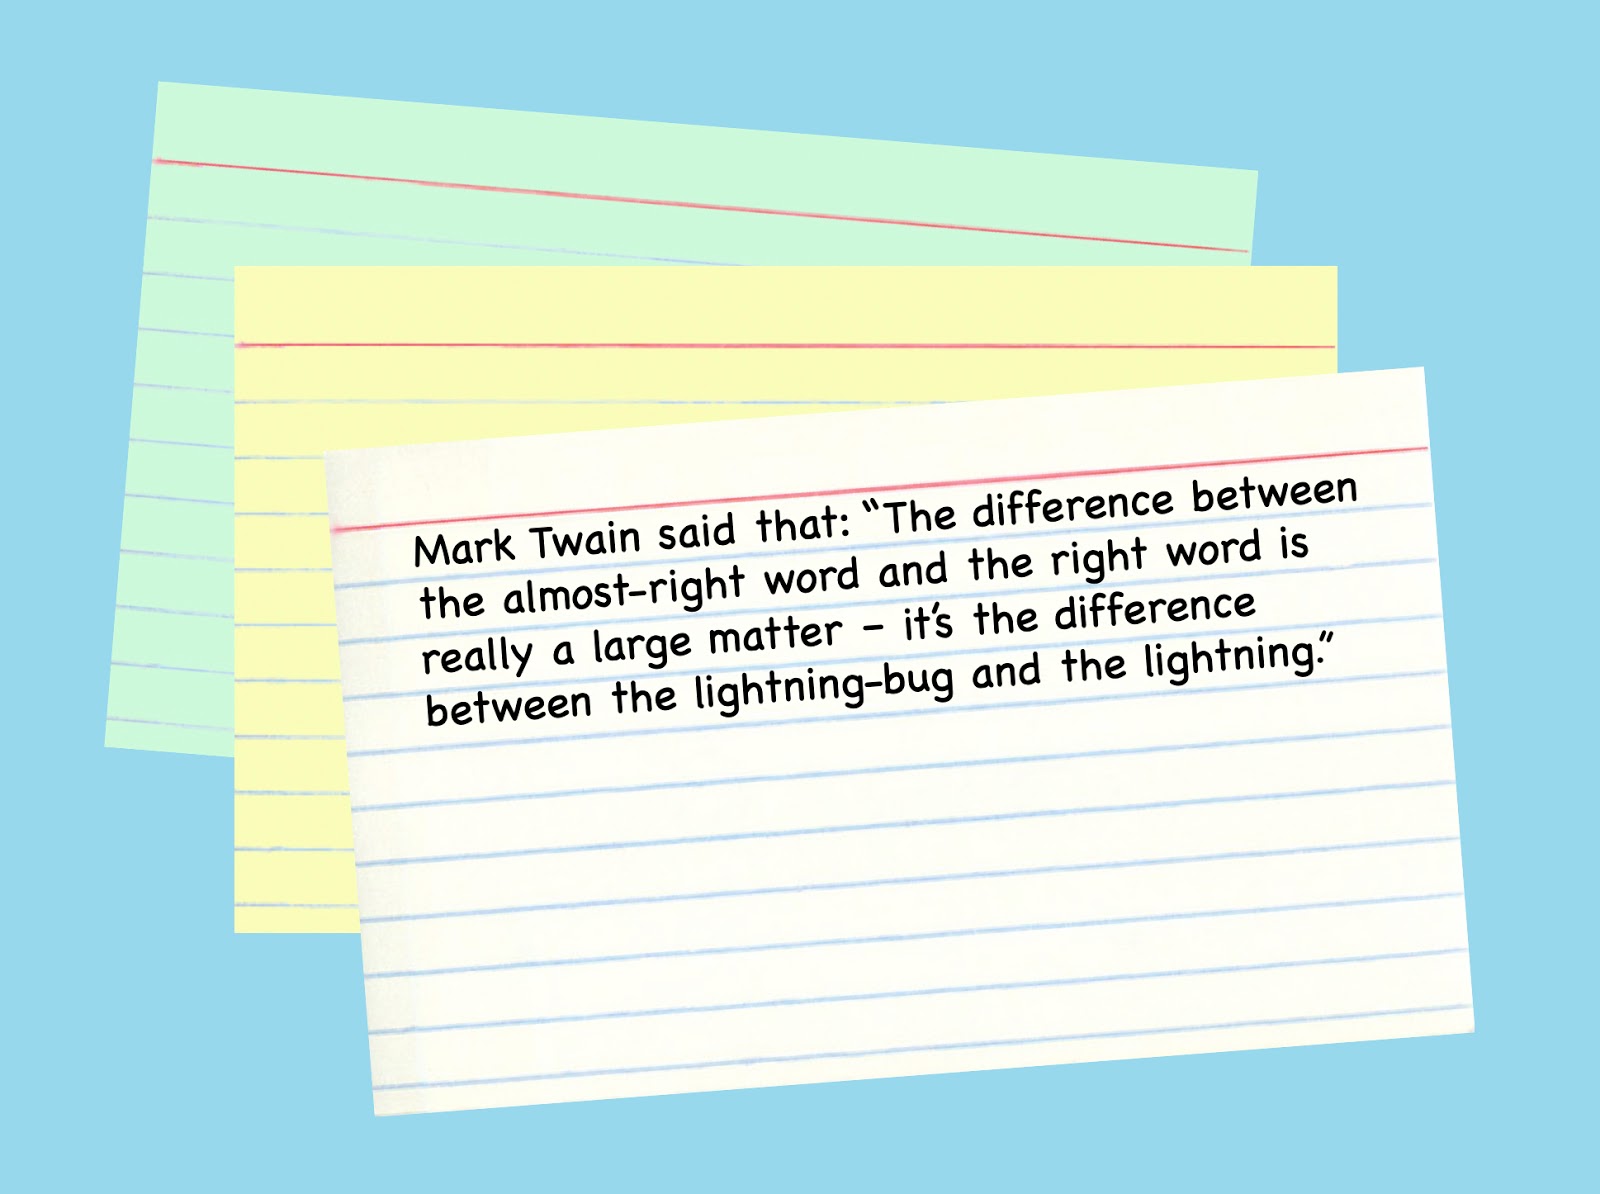 Mark Twain said that: “The difference between
the almost-right word and the right word is
really a large matter – it’s the difference
between the lightning-bug and the lightning.”